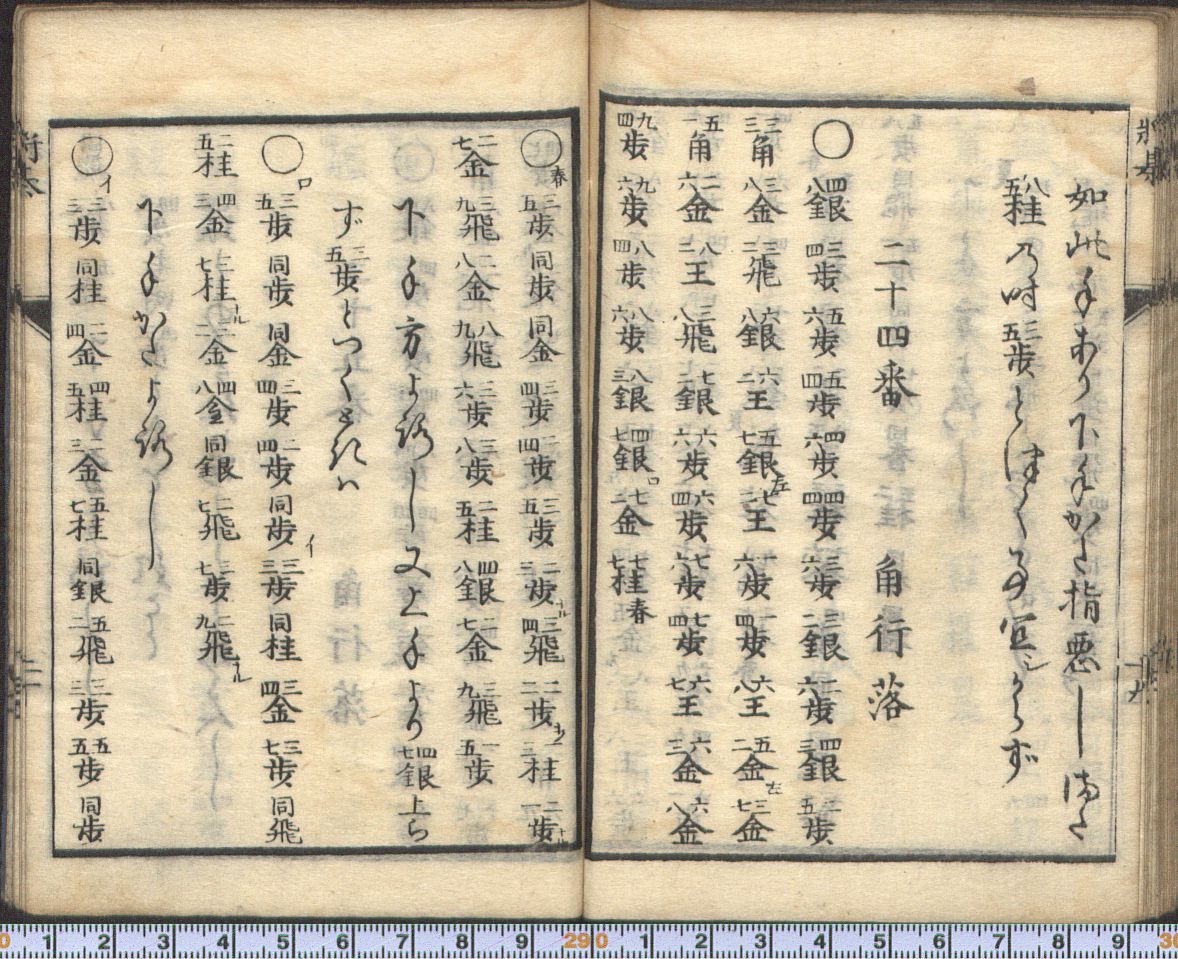 如此手あり下手かた指悪しまた
八五桂の時三五歩とつく事宜しからず
二十四番 角行落
〇 四八銀 三四歩 五六歩 五四歩 四六歩 四四歩 三六歩 三二銀 二六歩 四三銀 二五歩
三三角 三八金 三二飛 六八銀 六二王 五七銀左 七二王 六歩 一四歩 六八王 五二金左 三七金
五一角 二六金 八二王 三八飛 七二銀 六六歩 六四歩 七六歩 七四歩 六七王 六三金 六八金
九四歩 九六歩 八四歩 八六歩 八三銀 四七銀ロ 七二金 七七桂春
〇春 三五歩 同歩 同金 三四歩 二四歩 三五歩 二三歩ナル 三四飛 二二歩 三桂 二一歩ナル
二七金 三九飛 二八金 八九飛 三六歩 三八歩 二五桂 四八銀 二七金 三九飛 一五歩
下手方よろしし又上手より四七銀上ら
ず三五歩とつくときは
〇ロ 三五歩 同歩 同金 三四歩 二四歩 同歩イ 三三歩 同桂 三四金 三七歩 同飛
二五桂 四三金 三七桂ナル 三二金 四八金 同銀 二七飛 三七歩 二九飛ナル
下手かたよろしし
〇イ 三三歩 同桂 二四金 四五桂 三金 五七桂 同銀 五二飛 三三歩 五五歩 同歩